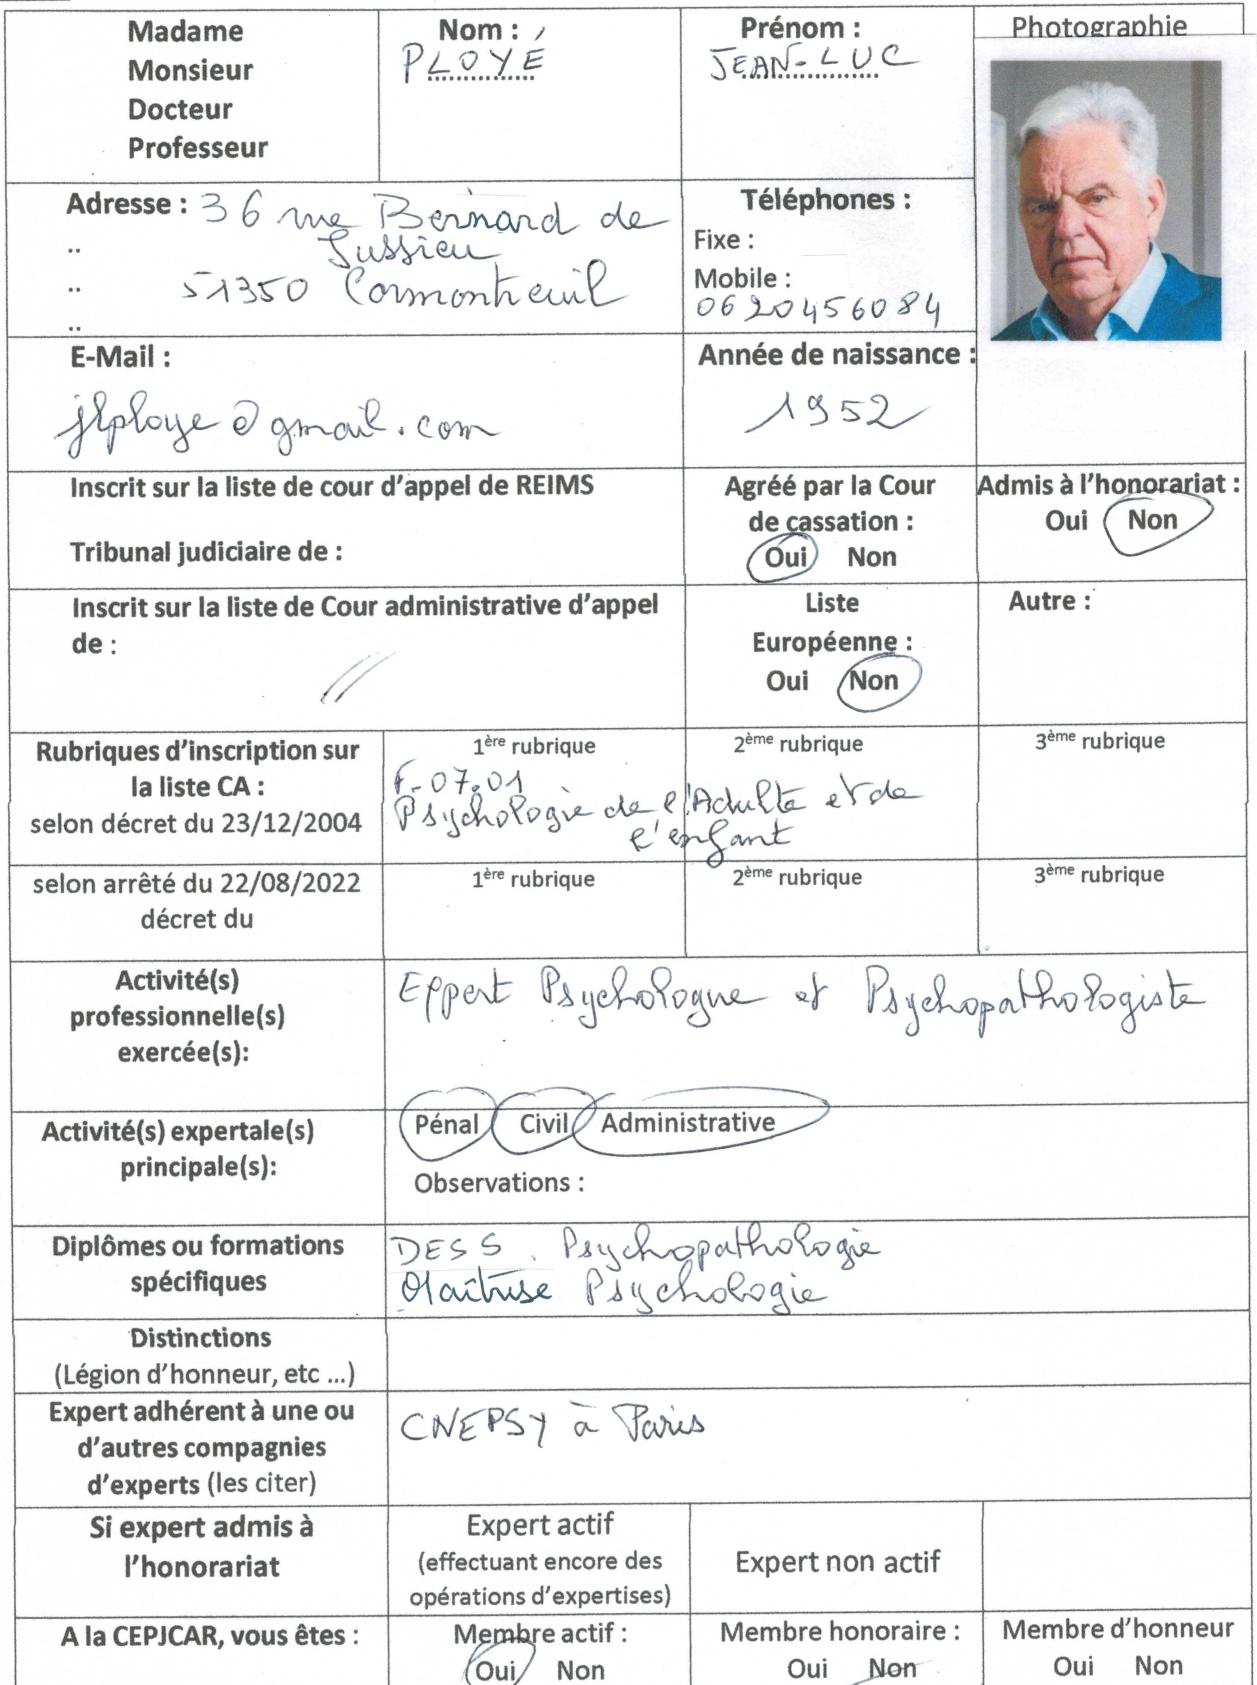 Madame
Monsieur
Docteur
Professeur
Nom :
PLOYÉ
Prénom :
JEAN-LUC
Photographie
Adresse : 36 rue Bernard de
Jussieu
51350 Cormontreuil
Téléphones :
Fixe :
Mobile :
0620456084
E-Mail :
jlploye@gmail.com
Année de naissance :
1952
Inscrit sur la liste de cour d'appel de REIMS
Tribunal judiciaire de :
Agréé par la Cour
de cassation :
Oui Non
Admis à l'honorariat :
Oui Non
Inscrit sur la liste de Cour administrative d'appel
de :
Liste
Européenne :
Oui Non
Autre :
Rubriques d'inscription sur
la liste CA :
selon décret du 23/12/2004
1ère rubrique
2ème rubrique
3ème rubrique
F-07.01
Psychologie de l'Adulte et de
l'enfant
selon arrêté du 22/08/2022
décret du
1ère rubrique
2ème rubrique
3ème rubrique
Activité(s)
professionnelle(s)
exercée(s):
Expert Psychologue et Psychopathologiste
Activité(s) expertale(s)
principale(s):
Pénal Civil Administrative
Observations :
Diplômes ou formations
spécifiques
DESS. Psychopathologie
Maîtrise Psychologie
Distinctions
(Légion d'honneur, etc ...)
Expert adhérent à une ou
d'autres compagnies
d'experts (les citer)
CNEPSY à Paris
Si expert admis à
l'honorariat
Expert actif
(effectuant encore des
opérations d'expertises)
Expert non actif
A la CEPJCAR, vous êtes :
Membre actif :
Oui Non
Membre honoraire :
Oui Non
Membre d'honneur
Oui Non